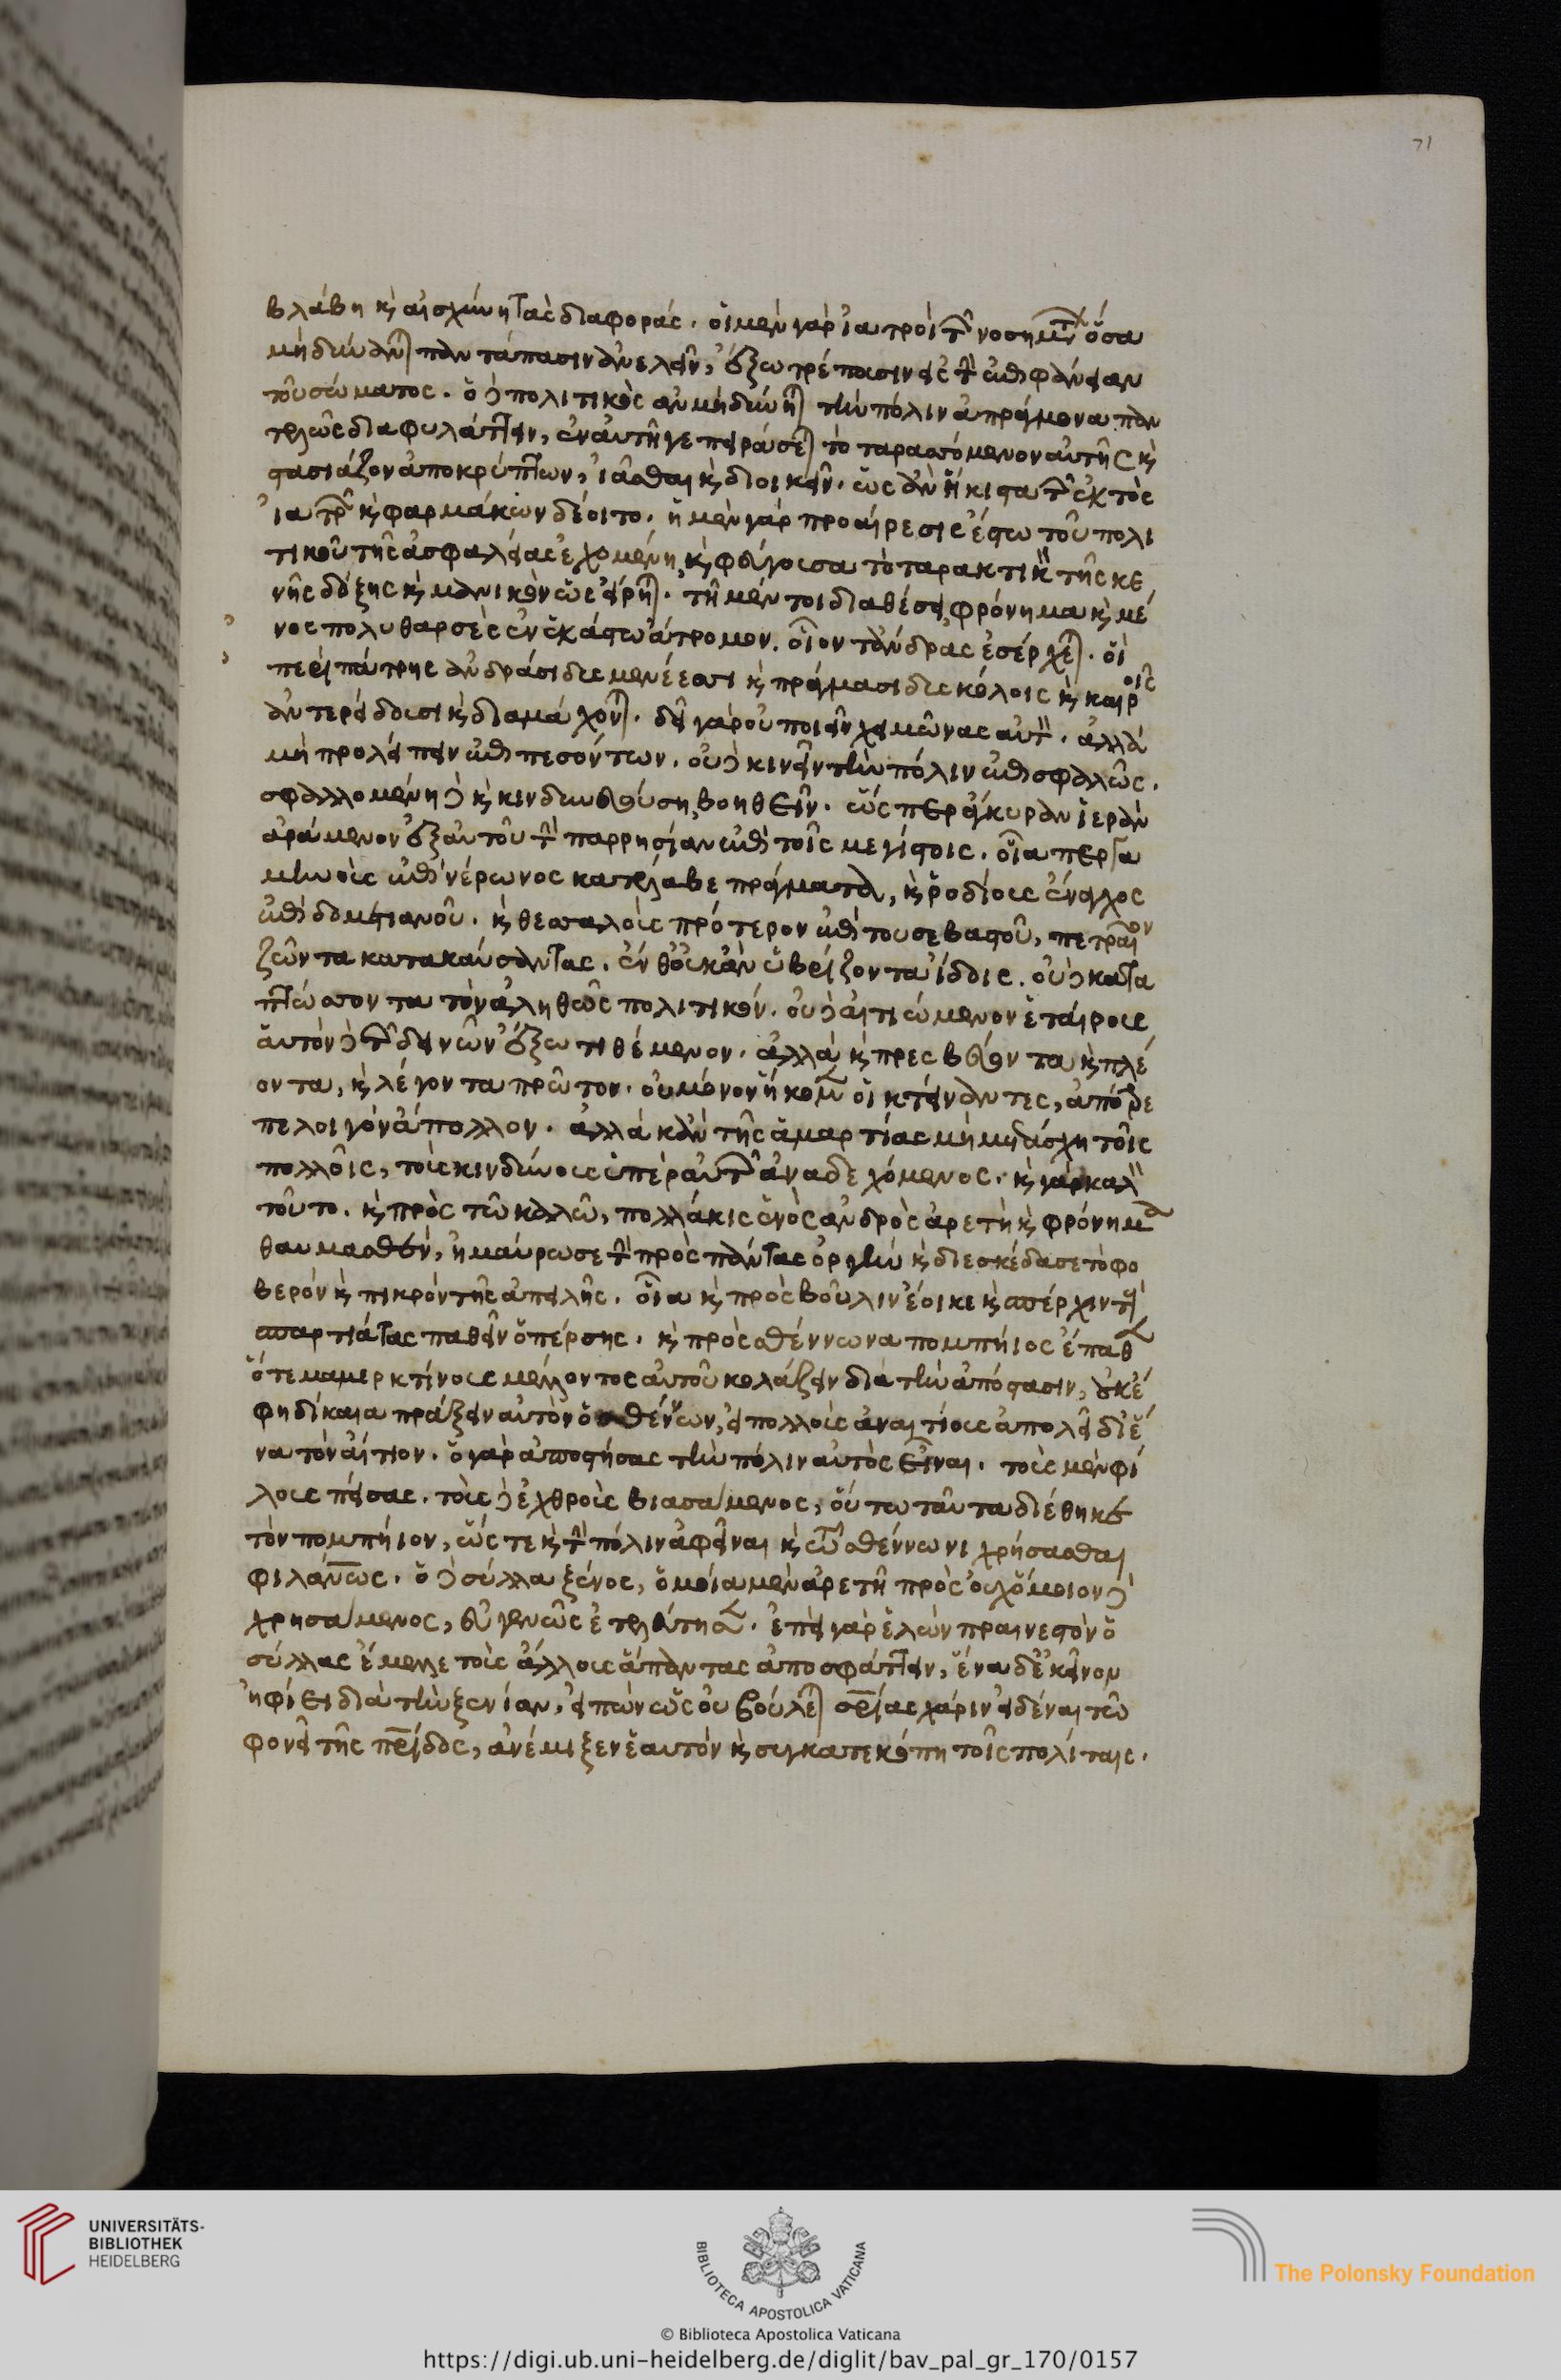 71
βλάβη κ αἰσχύνη τὰς διαφοράς. οἱ μὲν γὰρ ἰατροὶ τῶν νοσημάτων ὅσα
μὴ δύνανται παντάπασιν ἀνελεῖν, ἔξω τρέπουσιν εἰς τὴν ἐπιφάνειαν
τοῦ σώματος. ὁ δὲ πολιτικὸς ἂν μὴ δύνηται τὴν πόλιν ἀπράγμονα παν
τελῶς διαφυλάττειν, ἐν αὐτῇ γε πειράσεται τὸ ταρασσόμενον αὐτῆς κ
στασιάζον ἀποκρύπτων, ἰᾶσθαι κ διοικεῖν. ὡς ἂν ἥκιστα τῶν ἐκτὸς
ἰατρῶν κ φαρμάκων δέοιτο. ἡ μὲν γὰρ προαίρεσις ἔστω τοῦ πολι
τικοῦ τῆς ἀσφαλείας ἐχομένη κ φεύγουσα τὸ ταρακτικὸν τῆς κε
νῆς δόξης κ μανικὸν ὡς εἴρηται. τῇ μέντοι διαθέσει φρόνημα κ μέ
νος πολυθαρσὲς ἐνέστω ἄτρομον. οἷον τ' ἄνδρας ἐσέρχεται. οἳ
περὶ πάτρης ἀνδράσι δυσμενέεσσι κ πράγμασι δυσκόλοις κ καιροῖς
ἀντερείδουσι κ διαμάχονται. δεῖ γὰρ οὐ ποιεῖν χειμῶνας αὐτὸν. ἀλλὰ
μὴ προλείπειν ἐπιπεσόντων. οὐδὲ κινεῖν τὴν πόλιν ἐπισφαλῶς.
σφαλλομένῃ δὲ κ κινδυνευούσῃ βοηθεῖν. ὥσπερ ἄγκυραν ἱερὰν
ἀράμενον ἐξ αὐτοῦ τὴν παρρησίαν ἐπὶ τοῖς μεγίστοις. οἷα περγα
μηνοὺς ἐπὶ νέρωνος κατέλαβε πράγματα, κ ῥοδίους ἔναγχος
ἐπὶ δομετιανοῦ. κ θεσσαλοὺς πρότερον ἐπὶ τοῦ σεβαστοῦ, πετραῖον
ζῶντα κατακαύσαντας. ἔνθ' οὐκ ἂν βρίζοντα ἴδοις. οὐδὲ κατα
πτώσσοντα τὸν ἀληθῶς πολιτικόν. οὐδὲ αἰτιώμενον ἑταίρους
αὑτὸν δὲ τῶν δεινῶν ἔξω τιθέμενον. ἀλλὰ κ πρεσβεύοντα κ πλέ
οντα, κ λέγοντα πρῶτον. οὐ μόνον ἥκομεν οἱ κτείναντες, ἀπότρε
πε λοιγὸν ἄπολλον. ἀλλὰ κἂν τῆς ἁμαρτίας μὴ μετάσχῃ τοῖς
πολλοῖς, τοὺς κινδύνους ὑπὲρ αὐτῶν ἀναδεχόμενος. κ γὰρ καλὸν
τοῦτο. κ πρὸς τῷ καλῷ, πολλάκις ἑνὸς ἀνδρὸς ἀρετὴ κ φρόνημα
θαυμασθὲν, ἠμαύρωσε τὴν πρὸς πάντας ὀργὴν κ διεσκέδασε τὸ φο
βερὸν κ πικρὸν τῆς ἀπειλῆς. οἷα κ πρὸς βοῦλιν ἔοικε κ σπέρχιν τοὺς
σπαρτιάτας παθεῖν ὁ πέρσης. κ πρὸς σθέννωνα πομπήιος ἔπαθεν
ὅτε μαμερκτίνους μέλλοντος αὐτοῦ κολάζειν διὰ τὴν ἀπόστασιν, οὐκ ἔ
φη δίκαια πράξειν αὐτὸν ὁ σθέννων, εἰ πολλοὺς ἀναιτίους ἀπολεῖ δι' ἕ
να τὸν αἴτιον. ὁ γὰρ ἀποστήσας τὴν πόλιν αὐτὸς εἶναι. τοὺς μὲν φί
λους πείσας. τοὺς δὲ ἐχθροὺς βιασάμενος, οὕτω ταῦτα διέθηκε
τὸν πομπήιον, ὥστε κ τὴν πόλιν ἀφεῖναι κ τῷ σθέννωνι χρήσασθαι
φιλανθρώπως. ὁ δὲ σύλλα ξένος, ὁμοία μὲν ἀρετῇ πρὸς οὐχ ὅμοιον δὲ
χρησάμενος, εὐγενῶς ἐτελεύτησεν. ἐπεὶ γὰρ ἑλὼν πραινεστὸν ὁ
σύλλας ἔμελλε τοὺς ἄλλους ἅπαντας ἀποσφάττειν, ἕνα δ' ἐκεῖνον
ἠφίει διὰ τὴν ξενίαν, εἰπὼν ὡς οὐ βούλεται σωτηρίας χάριν εἰδέναι τῷ
φονεῖ τῆς πατρίδος, ἀνέμιξεν ἑαυτὸν κ συγκατεκόπη τοῖς πολίταις.
UNIVERSITÄTS-
BIBLIOTHEK
HEIDELBERG
BIBLIOTECA APOSTOLICA VATICANA
The Polonsky Foundation
© Biblioteca Apostolica Vaticana
https://digi.ub.uni-heidelberg.de/diglit/bav_pal_gr_170/0157